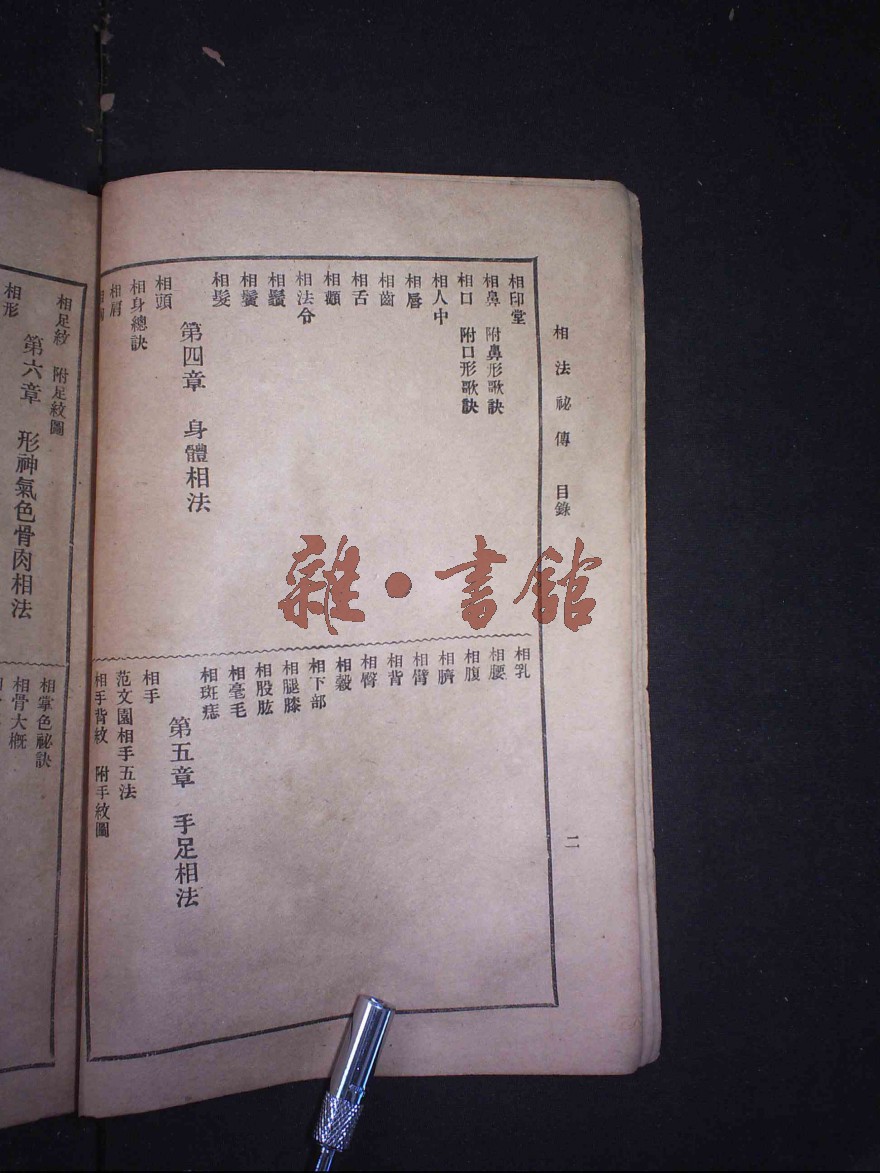 相法祕傳 目錄
二
相印堂
相鼻 附鼻形歌訣
相口 附口形歌訣
相人中
相唇
相齒
相舌
相顴
相法令
相鬚
相鬢
相髮
第四章 身體相法
相頭
相身總訣
相肩
相乳
相腰
相腹
相臍
相臂
相背
相臀
相穀
相下部
相腿膝
相股肱
相毫毛
相斑痣
第五章 手足相法
相手
范文園相手五法
相手背紋 附手紋圖
相足紋 附足紋圖
第六章 形神氣色骨肉相法
相形
相掌色祕訣
相骨大概
雜·書館